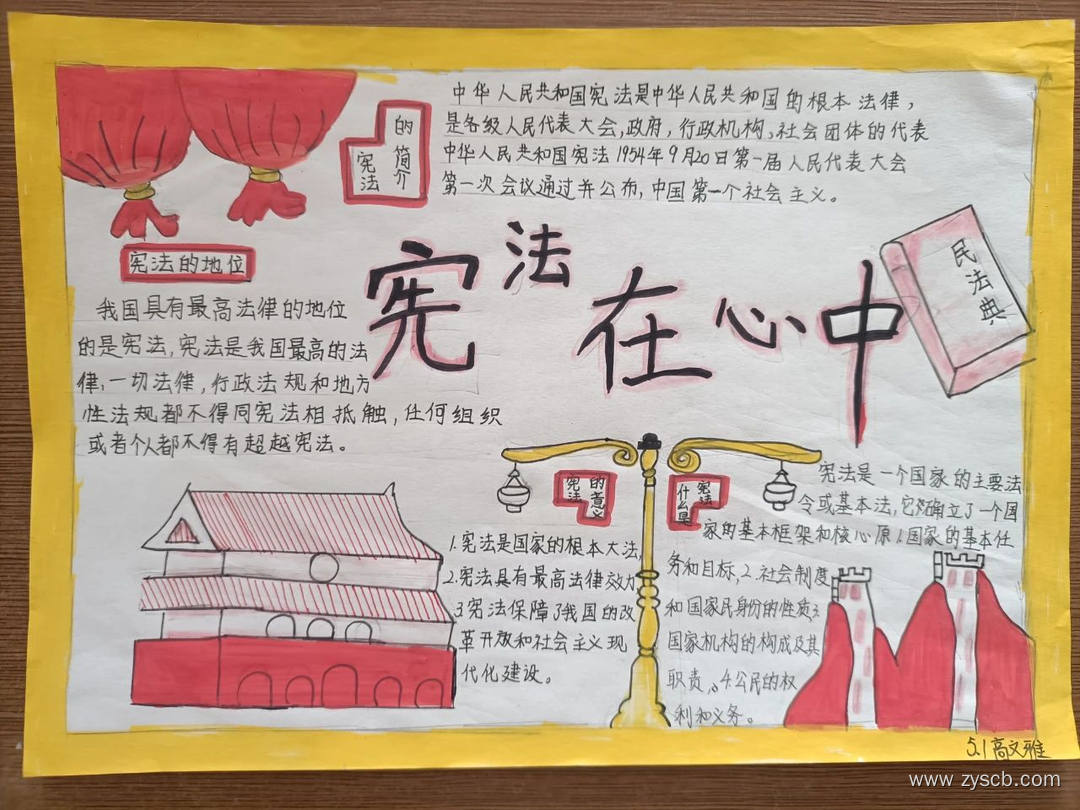 宪法的简介
中华人民共和国宪法是中华人民共和国的根本法律，
是各级人民代表大会，政府，行政机构、社会团体的代表
中华人民共和国宪法1954年9月20日第一届人民代表大会
第一次会议通过并公布，中国第一个社会主义。
宪法在心中
民法典
宪法的地位
我国具有最高法律的地位
的是宪法，宪法是我国最高的法
律，一切法律，行政法规和地方
性法规都不得同宪法相抵触，任何组织
或者个人都不得有超越宪法。
宪法的意义
1.宪法是国家的根本大法，
2.宪法具有最高法律效力
3宪法保障了我国的改
革开放和社会主义现
代化建设。
什么是宪法
宪法是一个国家的主要法
令或基本法，它确立了一个国
家的基本框架和核心原1.国家的基本任
务和目标，2.社会制度
和国家民身份的性质3
国家机构的构成及其
职责，4.公民的权
利和义务。
5.1高文雅
www.zyscb.com